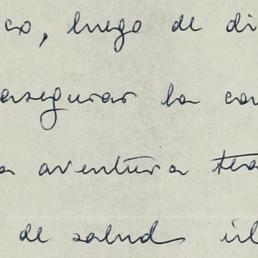 co, luego de di
asegurar la con
a aventura tea
de salud. il